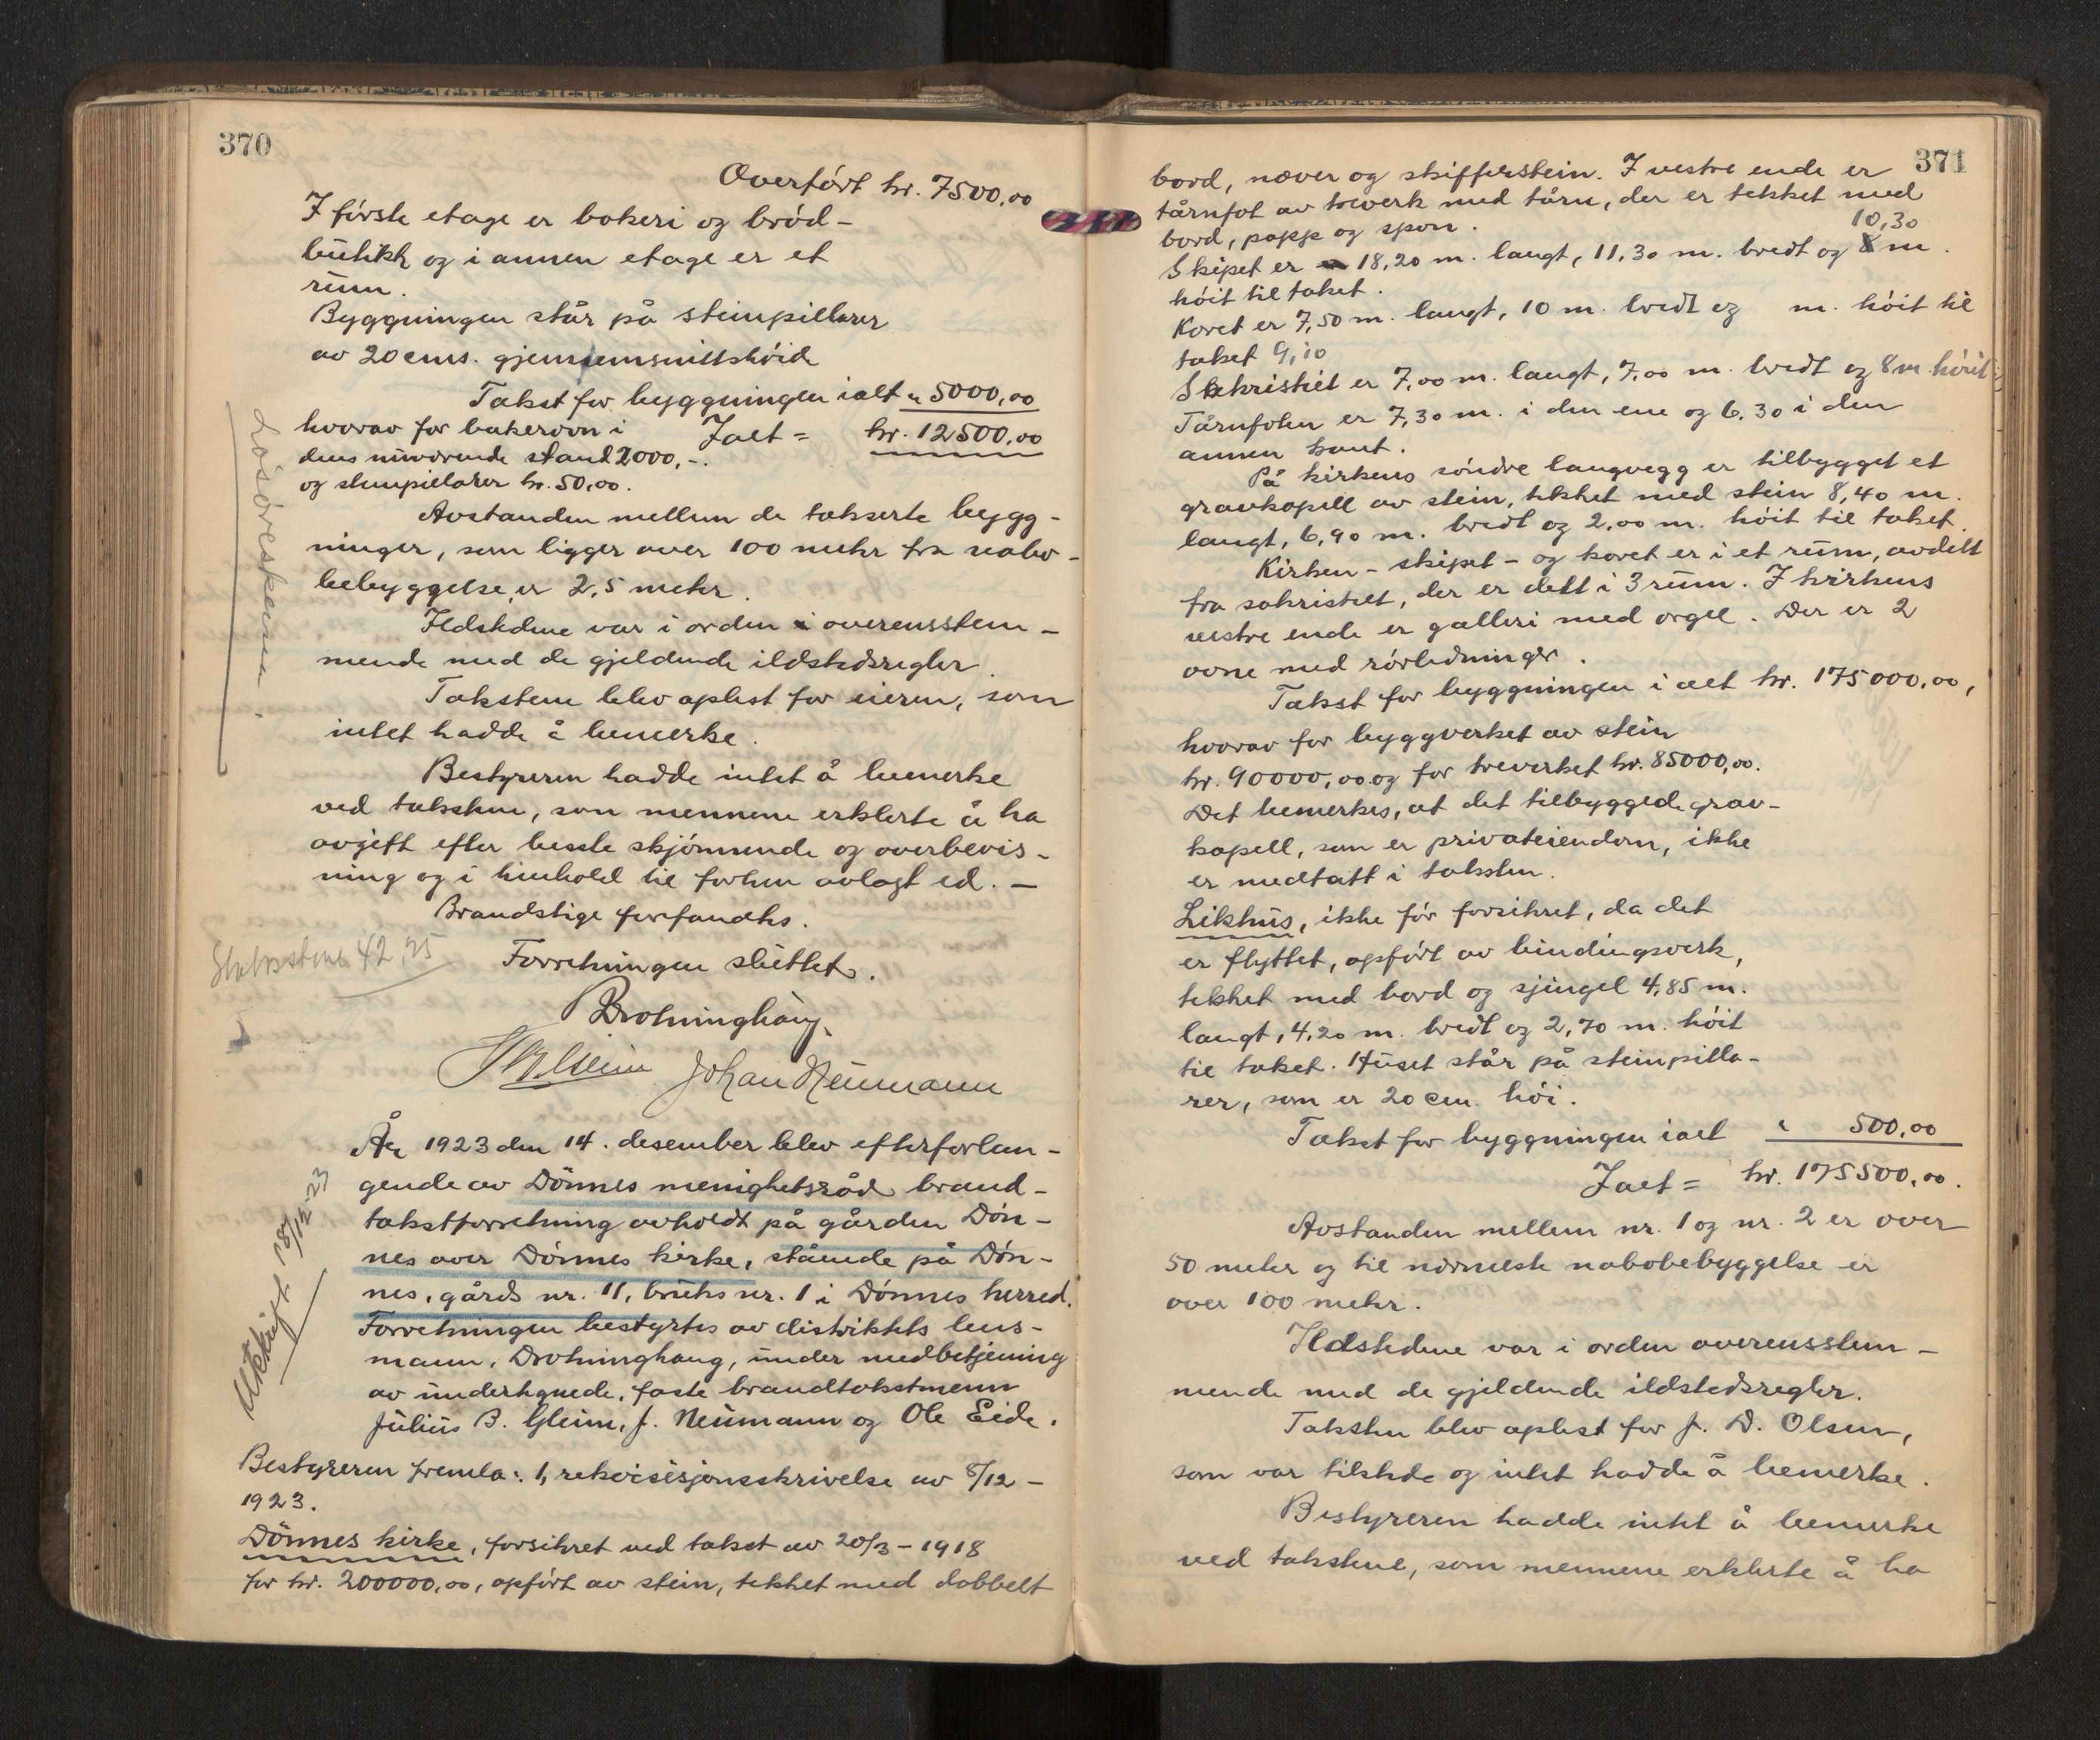 370
Overført kr. 7500,00
I første etage er bakeri og brød-
butikk og i annen etage er et
rum.
Byggningen står på steinpillarer
av 20 cms. gjennemsnittshøide
Takst for byggningen ialt " 5000,00
hvorav for bakerovn i Ialt = kr. 12500,00
dens nuværende stand 2000,-.
og steinpillarer kr. 50,00.
Avstanden mellem de takserte bygg-
ninger, som ligger over 100 meter fra nabo-
bebyggelse, er 2,5 meter.
Ildstedene var i orden i overensstem-
mende med de gjeldende ildstedsregler.
Takstene blev oplest for eieren, som
intet hadde å bemerke.
Bestyreren hadde intet å bemerke
ved takstene, som mennene erklerte å ha
avgitt efter beste skjønnende og overbevis-
ning og i henhold til forhen avlagt ed. —
Brandstige forefandtes.
42,25
Forretningen sluttet.
Drotninghaug.
Johan Neumann
År 1923 den 14. desember blev efter forlan-
gende av Dönnes menighetsråd brand-
takstforretning avholdt på gården Døn-
nes over Dönnes kirke, stående på Døn-
nes, gårds nr. 11, bruks nr. 1 i Dönnes herred.
Utskrift 18/12-23
Forretningen bestyrtes av distriktets lens-
mann, Drotninghaug, under medbetjening
av undertegnede, faste brandtakstmenn
Julius B. Gleim, J. Neumann og Ole Eide.
Bestyreren fremla: 1, rekvisisjonsskrivelse av 8/12-
1923.
Dönnes kirke, forsikret ved takst av 20/3-1918
for kr. 200000,00, opført av stein, tekket med dobbelt
371
bord, næver og skifferstein. I vestre ende er
tårnfot av treverk med tårn, der er tekket med
bord, papp og spon.
10,30
Skipet er 18,20 m. langt, 11,30 m. bredt og 8 m.
høit til taket.
Koret er 7,50 m. langt, 10 m. bredt og m. høit til
taket 9,10
Sakristiet er 7,00 m. langt, 7,00 m. bredt og 8 m. høit
Tårnfoten er 7,30 m. i den ene og 6,30 i den
annen kant.
På kirkens søndre langvegg er tilbygget et
gravkapell av stein, tekket med stein 8,40 m.
langt, 6,90 m. bredt og 2,00 m. høit til taket.
Kirken - skipet - og koret er i et rum, avdelt
fra sakristiet, der er delt i 3 rum. I kirkens
vestre ende er galleri med orgel. Der er 2
ovne med rørledninger.
Takst for byggningen i alt kr. 175000,00,
hvorav for byggverket av stein
kr. 90000,00 og for treverket kr. 85000,00.
Det bemerkes, at det tilbyggede grav-
kapell, som er privateiendom, ikke
er medtatt i taksten.
Likhus, ikke før forsikret, da det
er flyttet, opført av bindingsverk,
tekket med bord og sjingel 4,85 m.
langt, 4,20 m. bredt og 2,70 m. høit
til taket. Huset står på steinpilla-
rer, som er 20 cm. høi.
Takst for byggningen ialt " 500,00
Ialt = kr. 175500,00.
Avstanden mellem nr. 1 og nr. 2 er over
50 meter og til nærmeste nabobebyggelse er
over 100 meter.
Ildstedene var i orden overensstem-
mende med de gjeldende ildstedsregler.
Taksten blev oplest for J. D. Olsen,
som var tilstede og intet hadde å bemerke.
Bestyreren hadde intet å bemerke
ved takstene, som mennene erklerte å ha